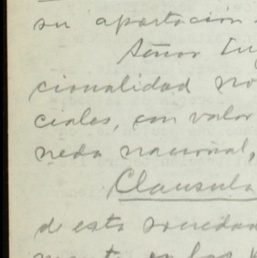 su aportación
Señor In
cionalidad no
ciales, con valor
neda nacional,
Clausula
de esta sociedad